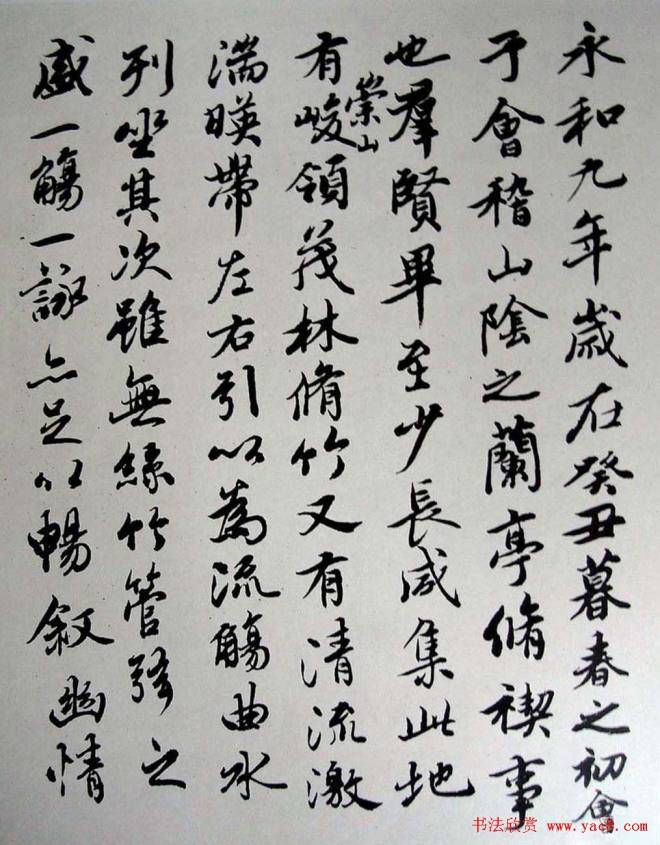 永和九年歲在癸丑暮春之初會
于會稽山陰之蘭亭脩禊事
也羣賢畢至少長咸集此地
有崇山峻領茂林脩竹又有清流激
湍暎帶左右引以為流觴曲水
列坐其次雖無絲竹管弦之
盛一觴一詠亦足以暢敘幽情
书法欣赏 www.yac8.com